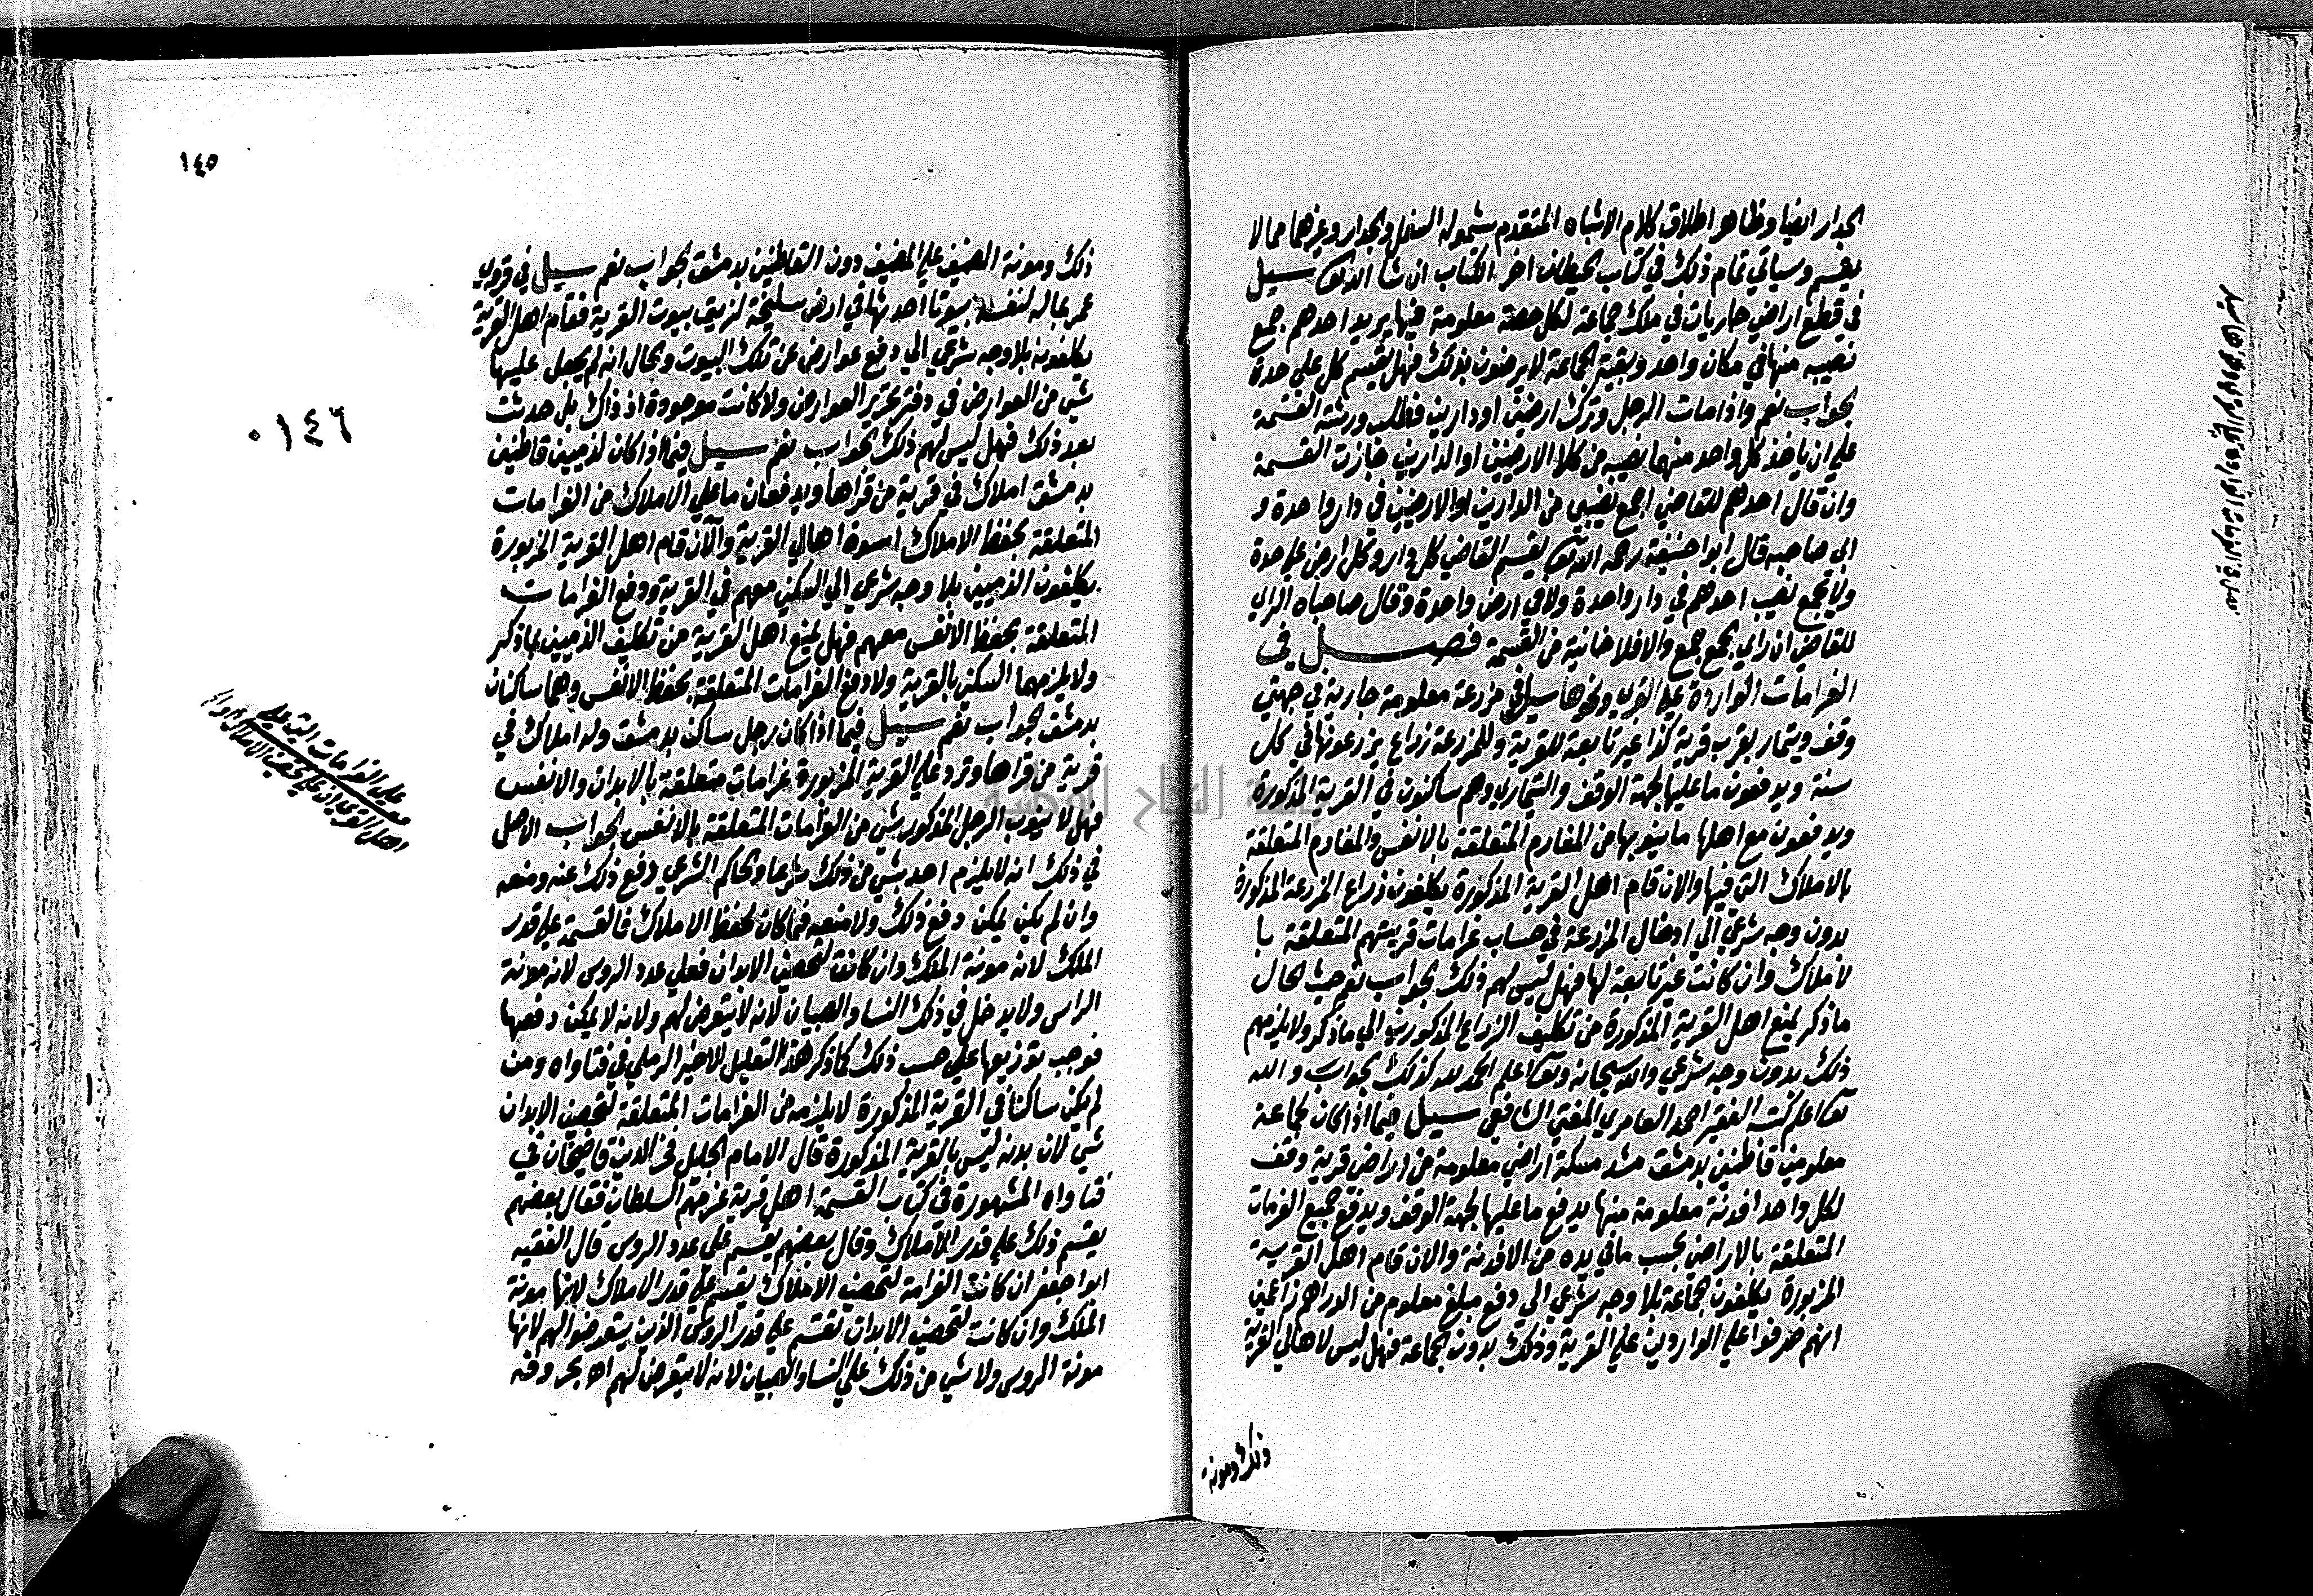 الجدار ايضا وظاهر اطلاق كلام الاشباه المتقدم شموله السفل والجدار وغيرهما مما لا
يقسم وسياتي تمام ذلك في كتاب الحيطان اخر الكتاب ان شا الله تعا سيل
في قطع اراضي جاريات في ملك جماعة لكل حصة معلومة فيها يريد احدهم جمع
نصيبه منها في مكان واحد وبقية الجماعة لا يرضون بذلك فهل تقسم كل على حدة
الجواب نعم واذا مات الرجل وترك ارضين او دارين فطلب ورثته القسمة
علي ان ياخذ كل واحد منهما نصيبه من كلا الارضين او الدارين جازت القسمة
وان قال احدهم للقاضي اجمع نصيبي من الدارين او الارضين في دار واحدة و
ابى صاحبه قال ابوا حنيفة رحمه الله تعا يقسم القاضي كل دار وكل ارض على حدة
ولا يجمع نصيب احدهم في دار واحدة ولا في ارض واحدة وقال صاحباه الراي
للقاضي ان راي الجمع جمع والا فلا خانية من القسمة فصل في
الغرامات الواردة علي القرى ونحوها سيل في مزرعة معلومة جارية في جهتي
وقف وتيمار بقرب قرية كذا غير تابعة للقرية وللمزرعة زراع يزرعونها في كل
سنة ويدفعون ما عليها لجهة الوقف والتيماري وهم ساكنون في القرية المذكورة
ويدفعون مع اهلها ما ينوبها من المغارم المتعلقة بالانفس والمغارم المتعلقة
بالاملاك التي فيها والان قام اهل القرية المذكورة يكلفون زراع المزرعة المذكورة
بدون وجه شرعي الي ادخال المزرعة في حساب غرامات قريتهم المتعلقة با
لاملاك وان كانت غير تابعة لها فهل ليس لهم ذلك الجواب نعم حيث الحال
ما ذكر يمنع اهل القرية المذكورة من تكليف الزراع المذكورين الي ما ذكر ولا يلزمهم
ذلك بدون وجه شرعي والله سبحانه وتعا اعلم الحمد لله كذلك الجواب والله
تعا اعلم كتبه الفقير احمد العامري المفتي الشافعي سيل فيما اذا كان لجماعة
معلومين قاطنين بدمشق مشد مسكة اراضي معلومة من اراضي قرية وقف
لكل واحد افدنة معلومة منها يدفع ما عليها لجهة الوقف ويدفع جميع الغرمات
المتعلقة بالاراضي بحسب ما في يده من الافدنة والان قام اهل القرية
المزبورة يكلفون الجماعة بلا وجه شرعي الي دفع مبلغ معلوم من الدراهم زاعمين
انهم صرفوا علي الواردين علي القرية وذلك بدون الجماعة فهل ليس لاهالي القرية
ذلك ومونة
١٤٥
١٤٦
ذلك ومونة الضيف علي المضيف دون القاطنين بدمشق الجواب نعم سيل في قروي
عمر بماله لنفسه بيوتا احدثها في ارض سليخة لزيق بيوت القرية فقام اهل القرية
يكلفونه بلا وجه شرعي الي دفع عوارض عن تلك البيوت والحال انه لم يجعل عليها
شي من العوارض في دفتر تحرير العوارض ولا كانت موجودة اذ ذاك بل حدثت
بعد ذلك فهل ليس لهم ذلك الجواب نعم سيل فيما اذا كان لذميين قاطنين
بدمشق املاك في قرية من قراها ويدفعان ما علي الاملاك من الغرامات
المتعلقة بحفظ الاملاك اسوة اهالي القرية والآن قام اهل القرية المزبورة
يكلفون الذميين بلا وجه شرعي الي السكن معهم في القرية ودفع الغرامات
المتعلقة بحفظ الانفس معهم فهل يمنع اهل القرية من تكليف الذميين بما ذكر
ولا يلزمهما السكن بالقرية ولا دفع الغرامات المتعلقة بحفظ الانفس وهما ساكنان
بدمشق الجواب نعم سيل فيما اذا كان رجل ساكن بدمشق وله املاك في
قرية من قراها وترد علي القرية المزبورة غرامات متعلقة بالابدان والانفس
فهل لا ينوب الرجل المذكور شي من الغرامات المتعلقة بالانفس الجواب الاصل
في ذلك انه لا يلزم احد بشي من ذلك شرعا والحاكم الشرعي دفع ذلك عنه ومنعه
وان لم يكن يمكن دفع ذلك ولا منعه فما كان لحفظ الاملاك فالقسمة علي قدر
الملك لانه مونة الملك وان كانت لتحصين الابدان فعلي عدد الروس لانه مونة
الراس ولا يدخل في ذلك النسا والصبيان لانه لا يتعرض لهم ولانه لا يمكن دفعها
فوجب توزيعها على حسب ذلك كما ذكر هذا التعليل الاخير الرملي في فتاواه ومن
لم يكن ساكنا في القرية المذكورة لا يلزمه من الغرامات المتعلقة لتحصين الابدان
شي لان بدنه ليس بالقرية المذكورة قال الامام الجليل فخر الدين قاضيخان في
فتاواه المشهورة في كتاب القسمة اهل قرية غرمهم السلطان فقال بعضهم
يقسم ذلك علي قدر الاملاك وقال بعضهم يقسم على عدد الروس قال الفقيه
ابوا جعفر ان كانت الغرامة لتحصين الاملاك يقسم علي قدر الاملاك لانها مونة
الملك وان كانت لتحصين الابدان تقسم علي قدر الروس الذين يتعرضوا لهم لانها
مونة الروس ولا شي من ذلك علي النسا والصبيان لانه لا يتعرض لهم اه بحروفه
علي الغرامات التي تعلي
اهل القرى ان علي حفظ الاملاك